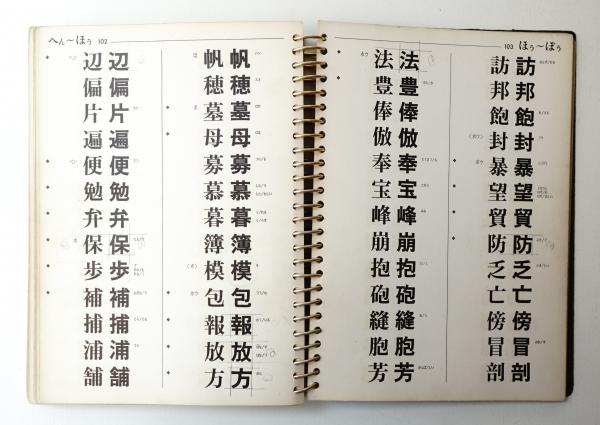 へん〜ほう 102
辺 辺
偏 偏
片 片
遍 遍
便 便
勉 勉
弁 弁
保 保
歩 歩
補 補
捕 捕
浦 浦
舗 舗
帆 帆
穂 穂
墓 墓
母 母
募 募
慕 慕
暮 暮
簿 簿
模 模
包 包
報 報
放 放
方 方
103 ほう〜ぼう
法 法
豊 豊
俸 俸
倣 倣
奉 奉
宝 宝
峰 峰
崩 崩
抱 抱
砲 砲
縫 縫
胞 胞
芳 芳
訪 訪
邦 邦
飽 飽
封 封
暴 暴
望 望
貿 貿
防 防
乏 乏
亡 亡
傍 傍
冒 冒
剖 剖